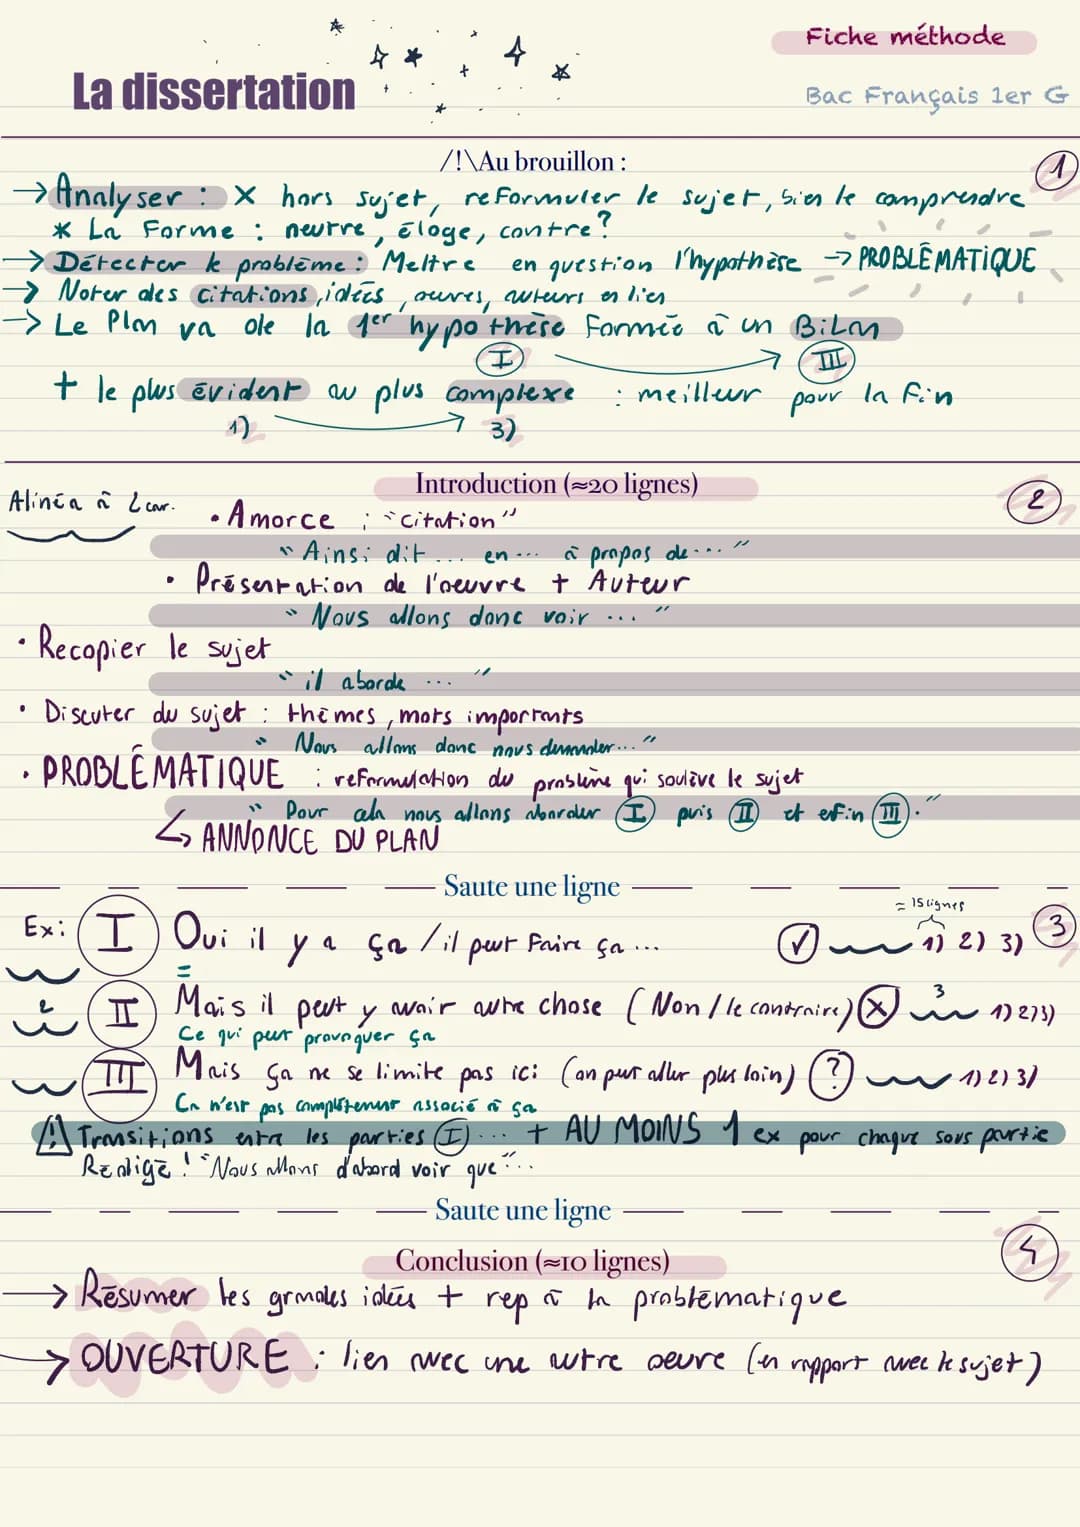 Fiche méthode
La dissertation
Bac Français 1er G
/!\Au brouillon :
1
→ Analyser : X hors sujet, reformuler le sujet, bien le comprendre
* La Forme : neutre, éloge, contre?
→ Détecter le problème : Mettre en question l'hypothèse → PROBLÉMATIQUE
→ Noter des citations, idées, œuvres, auteurs en lien
→ Le Plan va de la 1er hypothèse Formée à un BiLan
I III
+ le plus évident au plus complexe : meilleur pour la fin
1) 3)
Introduction (≈20 lignes)
2
Alinéa à 2 car.
• Amorce : "citation"
"Ainsi dit ... en ... à propos de ..."
• Présentation de l'oeuvre + Auteur
"Nous allons donc voir ..."
• Recopier le sujet
"il aborde ..."
• Discuter du sujet : thèmes, mots importants
"Nous allons donc nous demander..."
• PROBLÉMATIQUE : reformulation du problème qui soulève le sujet
"Pour cela nous allons aborder I puis II et enfin III."
↳ ANNONCE DU PLAN
Saute une ligne
= 15 lignes
3
Ex: I Oui il y a ça / il peut faire ça ... ✓ 1) 2) 3)
2 II Mais il peut y avoir autre chose (Non / le contraire) X 3 1) 2) 3)
Ce qui peut provoquer ça
III Mais ça ne se limite pas ici (on peut aller plus loin) ? 1) 2) 3)
Ca n'est pas complètement associé à ça
⚠ Transitions entre les parties I ... + AU MOINS 1 ex pour chaque sous partie
Rédigé ! "Nous allons d'abord voir que"...
Saute une ligne
Conclusion (≈10 lignes)
4
→ Résumer les grandes idées + rep à la problématique
→ OUVERTURE : lien avec une autre oeuvre (en rapport avec le sujet)